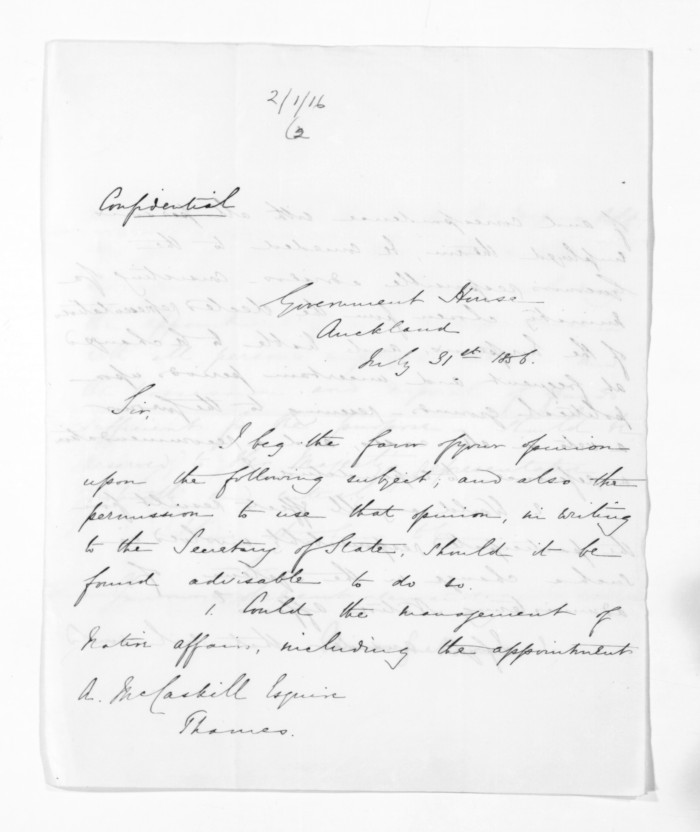 2/1/16
2
Confidential
Government House
Auckland
July 31st 1856.
Sir,
I beg the favor of your opinion
upon the following subject; and also the
permission to use that opinion, in writing
to the Secretary of State, should it be
found advisable to do so.
1. Could the management of
Native affairs, including the appointment
A. McCaskill Esquire
Thames.